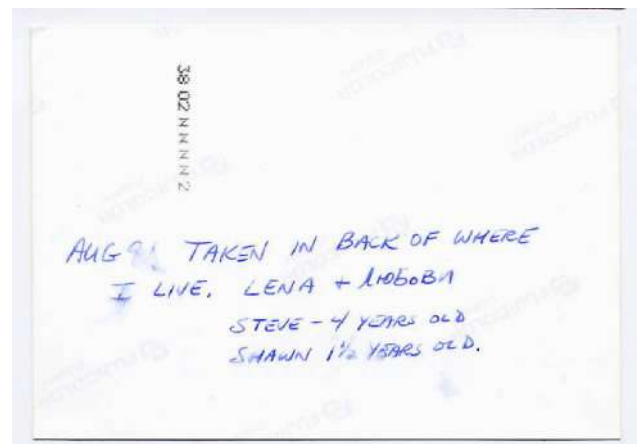 38 02 N N N N N 2
AUG TAKEN IN BACK OF WHERE
I LIVE. LENA + Любовл
STEVE - 4 YEARS OLD
SHAWN 1½ YEARS OLD.